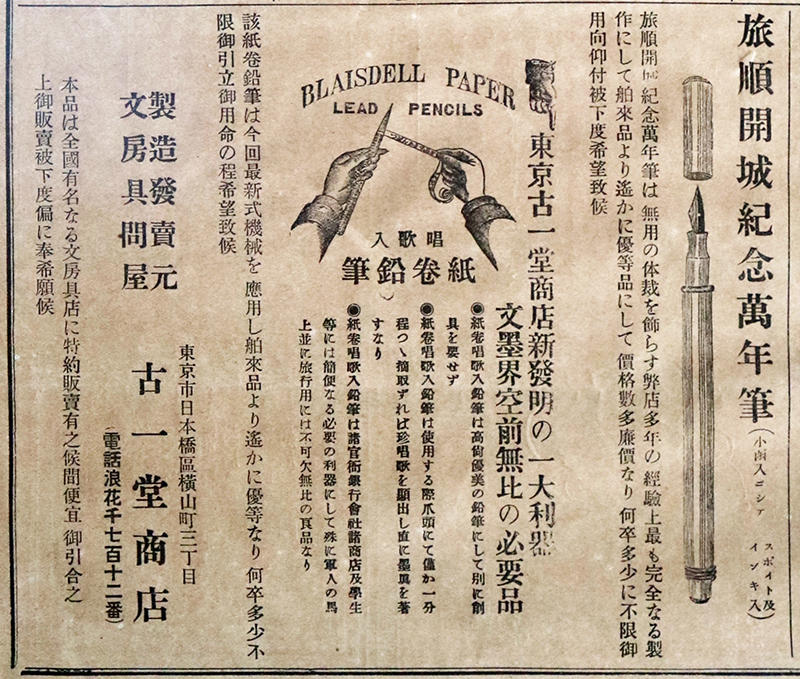 旅順開城紀念萬年筆
(小函入ニシテ スポイト及 インキ入)
旅順開城紀念萬年筆は 無用の体裁を飾らす弊店多年の 經驗上最も完全なる製
作にして舶來品より遙かに優等品にして 價格數多廉價なり 何卒多少に不限御
用向仰付被下度希望致候
東京古一堂商店新發明の一大利器
文墨界空前無比の必要品
BLAISDELL PAPER
LEAD PENCILS
唱歌入
紙卷鉛筆
◉紙卷唱歌入鉛筆は高尙優美の鉛筆にして別に削
具を要せず
◉紙卷唱歌入鉛筆は使用する際爪頭にて僅か一分
程つゝ摘取ずれば珍唱歌を顯出し直に墨眞を著
すなり
◉紙卷唱歌入鉛筆は諸官衙銀行會社諸商店及學生
等には簡便なる必要の利器にして殊に軍人の馬
上並に旅行用には不可欠無比の良品なり
該紙卷鉛筆は今回最新式機械を 應用し舶來品より遙かに優等なり 何卒多少不
限御引立御用命の程希望致候
製造發賣元
文房具問屋
東京市日本橋區橫山町三丁目
古一堂商店
(電話浪花千七百十二番)
本品は全國有名なる文房具店に特約販賣有之候間便宜 御引合之
上御販賣被下度偏に奉希願候